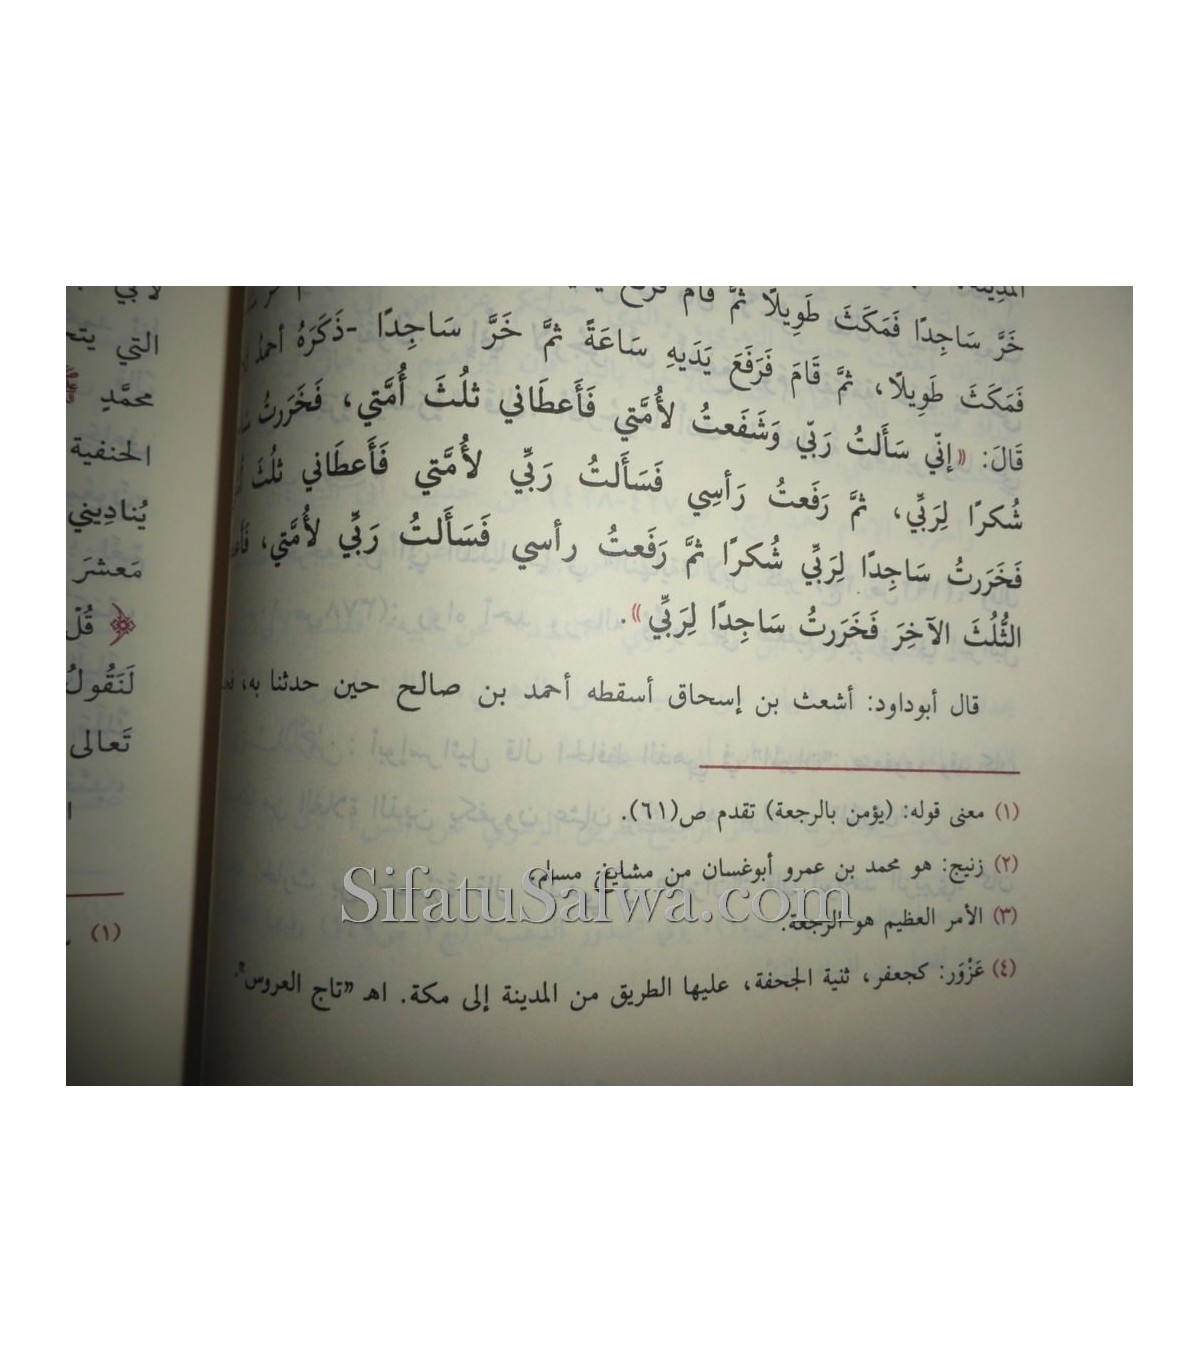 خَرَّ سَاجِدًا فَمَكَثَ طَوِيلًا ثمَّ قَامَ فَرَفَعَ
فَمَكَثَ طَوِيلًا، ثمَّ قَامَ فَرَفَعَ يَدَيهِ سَاعَةً ثمَّ خَرَّ سَاجِدًا -ذَكَرَهُ أحمدُ
قَالَ: «إنّي سَأَلتُ رَبّي وَشَفَعتُ لأُمَّتي فَأَعطَاني ثلُثَ أُمَّتي، فَخَرَرتُ
شُكرًا لِرَبِّي، ثمَّ رَفَعتُ رَأسِي فَسَأَلتُ رَبِّي لأُمَّتي فَأَعطَاني ثلُثَ
فَخَرَرتُ سَاجِدًا لِرَبِّي شُكرًا ثمَّ رَفَعتُ رأسي فَسَأَلتُ رَبِّي لأُمَّتي،
الثُّلُثَ الآخِرَ فَخَرَرتُ سَاجِدًا لِرَبِّي».
قال أبوداود: أشعث بن إسحاق أسقطه أحمد بن صالح حين حدثنا به،
(١) معنى قوله: (يؤمن بالرجعة) تقدم ص(٦١).
(٢) زنيج: هو محمد بن عمرو أبوغسان من مشايخ مسلم.
(٣) الأمر العظيم هو الرجعة.
(٤) عَزْوَر: كجعفر، ثنية الجحفة، عليها الطريق من المدينة إلى مكة. اهـ "تاج العروس".
التي
محمَّدٍ
الحنفية
يُنادِيني
مَعشرَ
﴿ قُل
لَنَقُولُ
تَعالى
(١)
SifatuSafwa.com